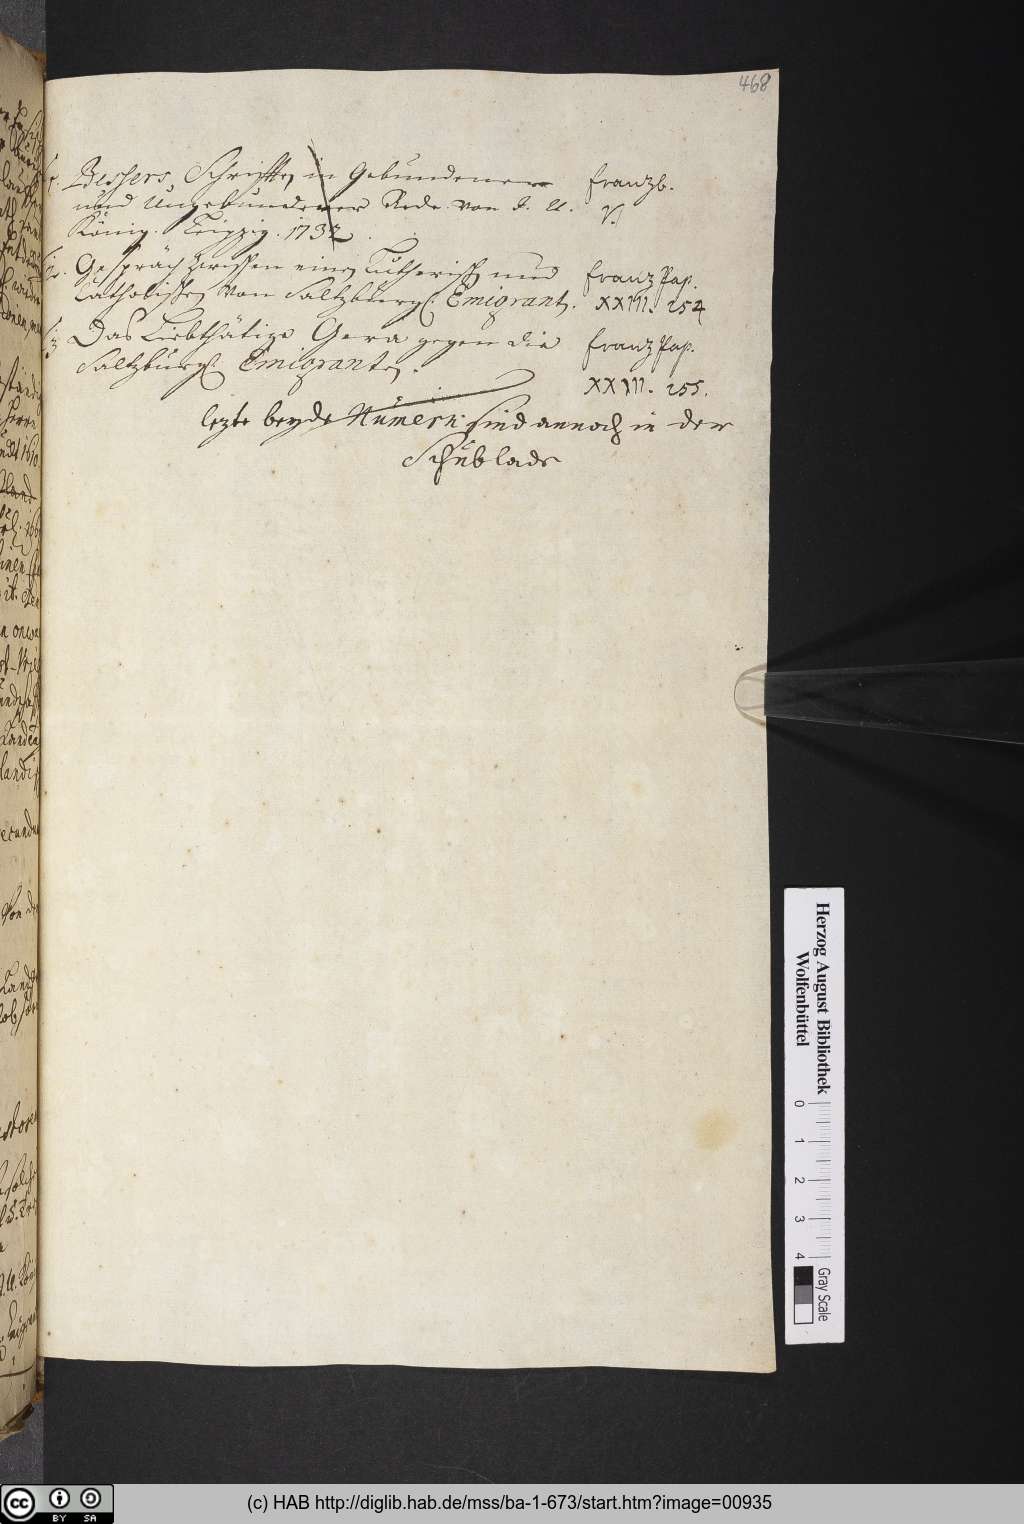 468
1. Bessers, Schrifften in Gebundener franzb.
und Ungebundener Rede von J. U. V.
König. Leipzig. 1732.
2. Gespräch zwischen einen Lutherisch und franz Pap.
Catholischen von Saltzburg. Emigranten. XXIII. 254
3. Das Liebthätige Gera gegen die franz Pap.
Saltzburg. Emigranten. XXIII. 255.
lezte beyde Numern sind annoch in der
Schublade
Herzog August Bibliothek
Wolfenbüttel
0 1 2 3 4
Gray Scale
(c) HAB http://diglib.hab.de/mss/ba-1-673/start.htm?image=00935
cc BY SA